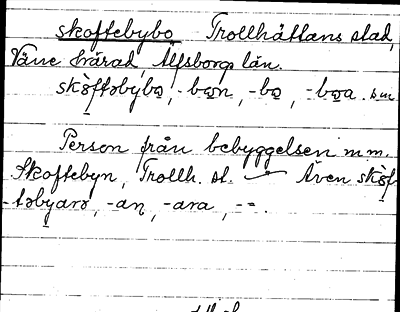 skoftebybo Trollhättans stad,
Väne härad Älfsborgs län.
skòftəbybo, -bon, -bo, -boa.
Person från bebyggelsen m.m.
Skoftebyn, Trollh. st. — Även skòf-
təbyarə, -an, -ara, -=.